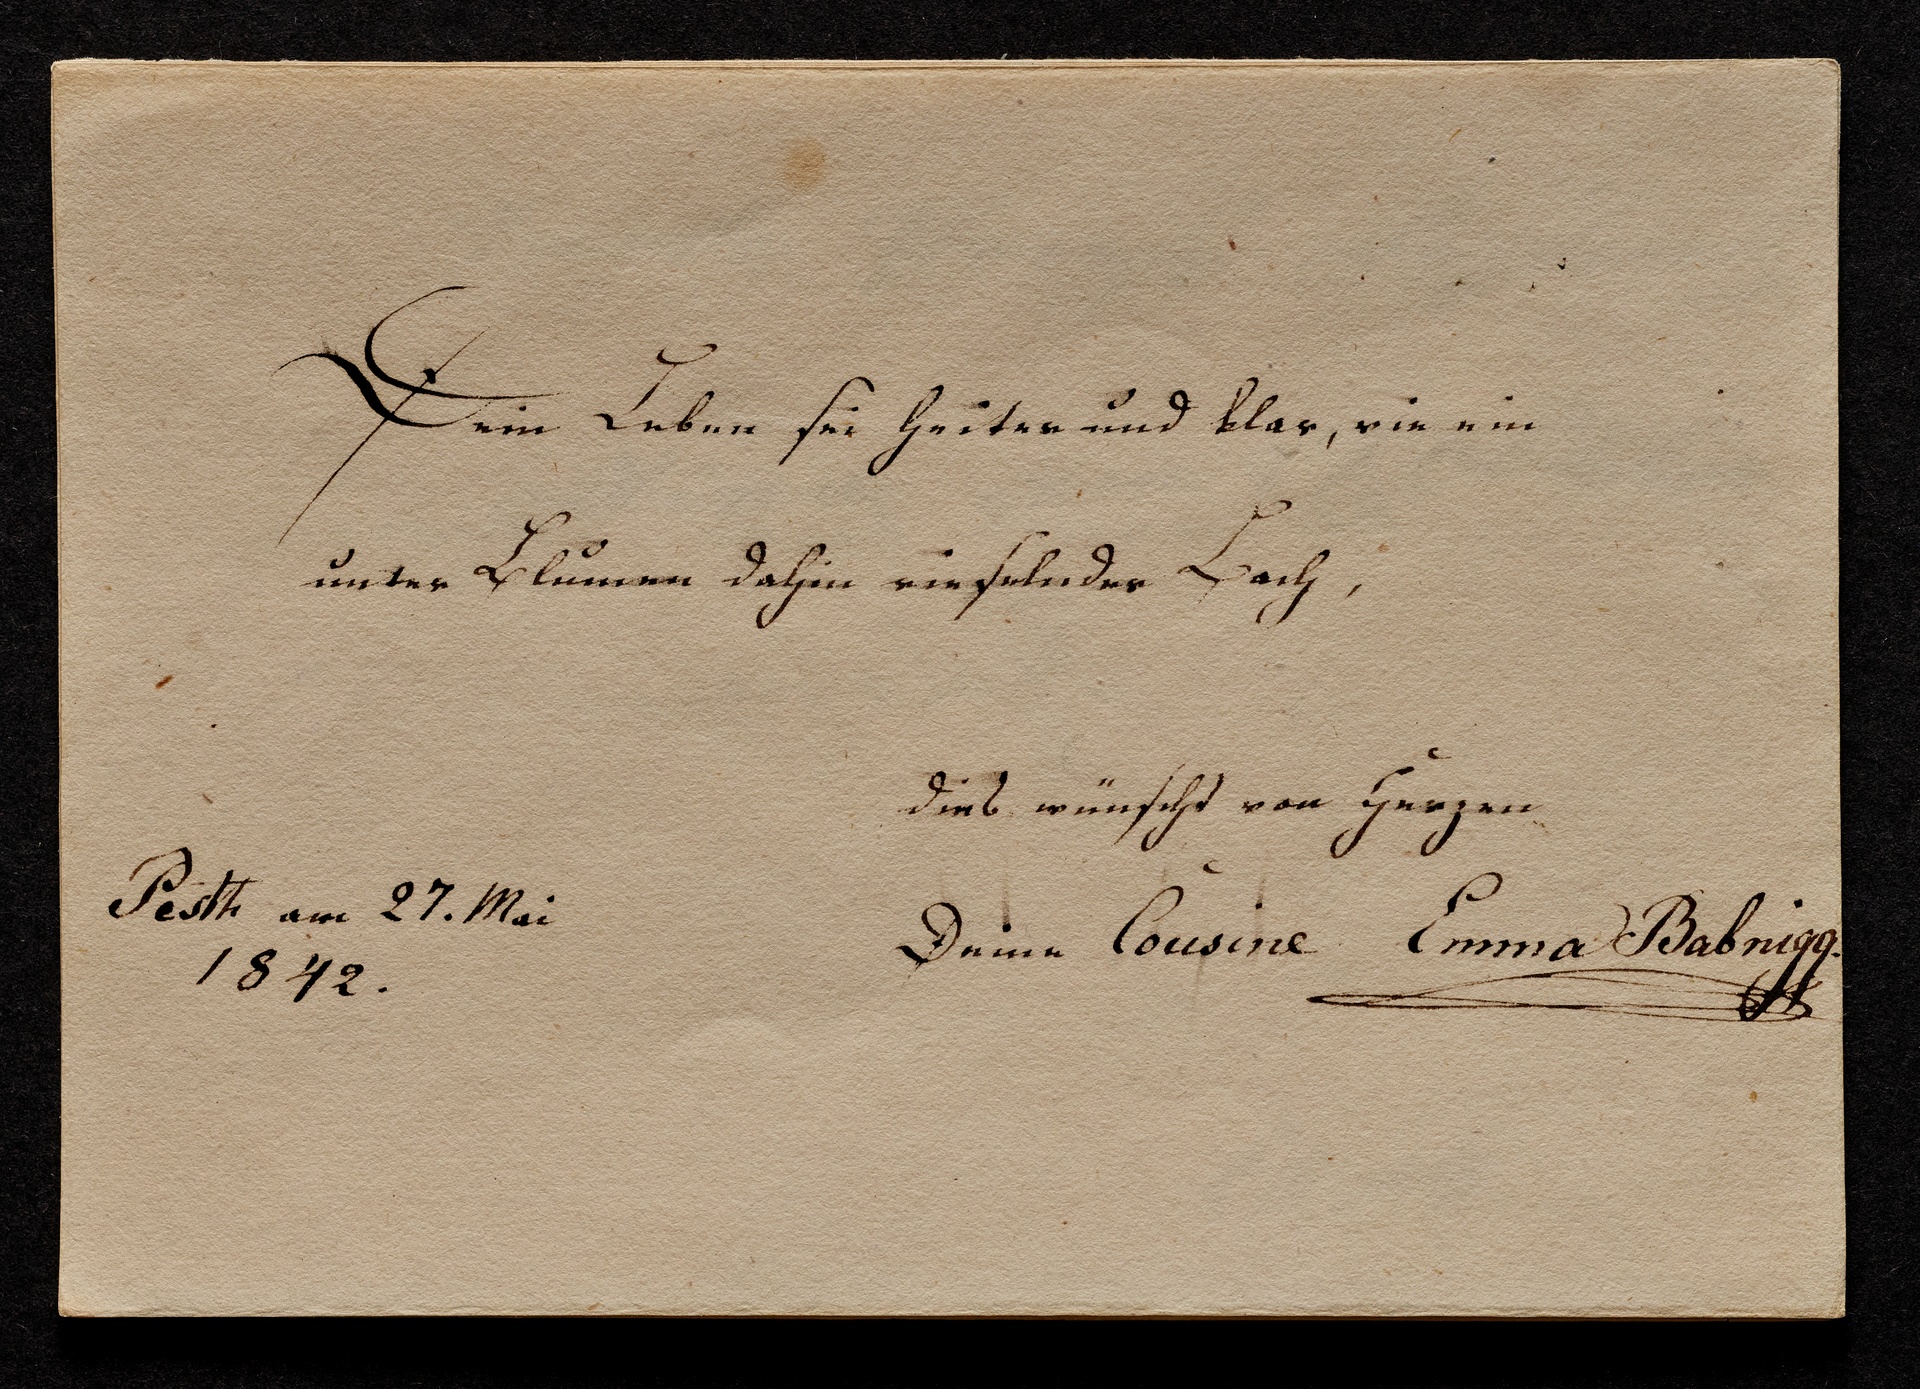 Dein Leben sei heiter und klar, wie ein
unter Blumen dahin rieselnder Bach,
dies wünscht von Herzen
Pesth am 27. Mai
1842.
Deine Cousine Emma Babnigg.